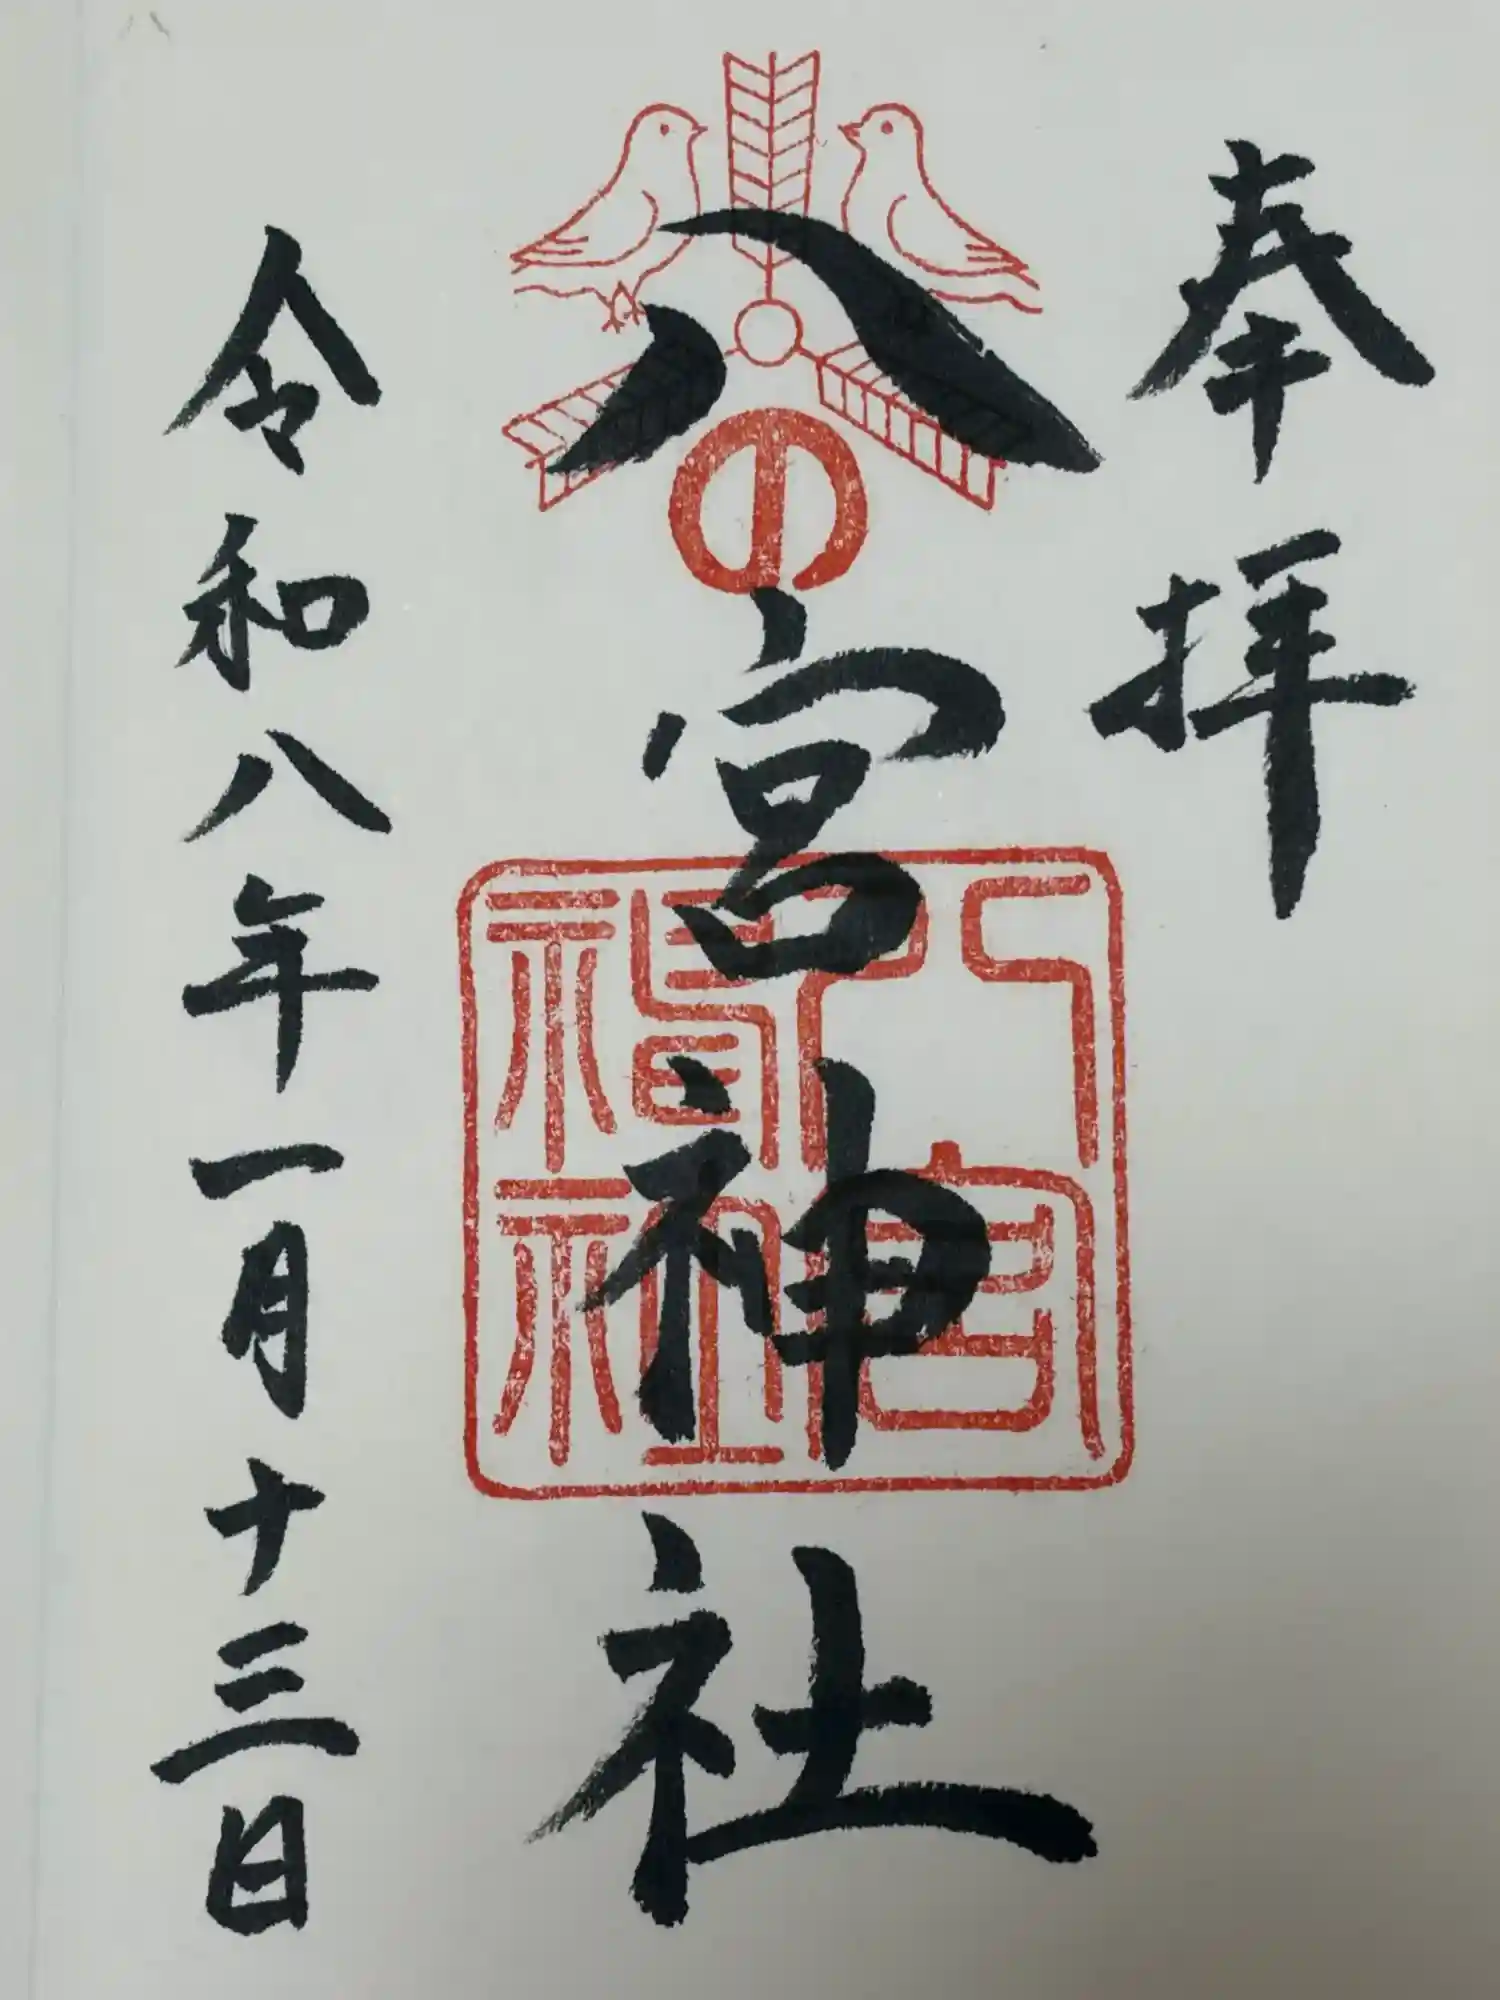 奉拝
八宮神社
八宮
神社
令和八年一月十三日